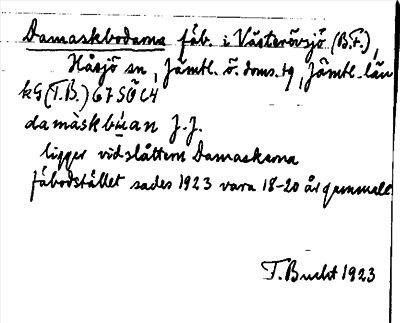 Damaskbodarna fäb. i Västerövsjö (B.F.),
Håsjö sn, Jämtl. ö. doms. tg, Jämtl. län
kG (T.B.) 67 SÖ C4
damàskbu̇an f.f.
ligger vid slåttern Damaskerna
fäbodstället sades 1923 vara 18-20 år gammalt
T. Bucht 1923